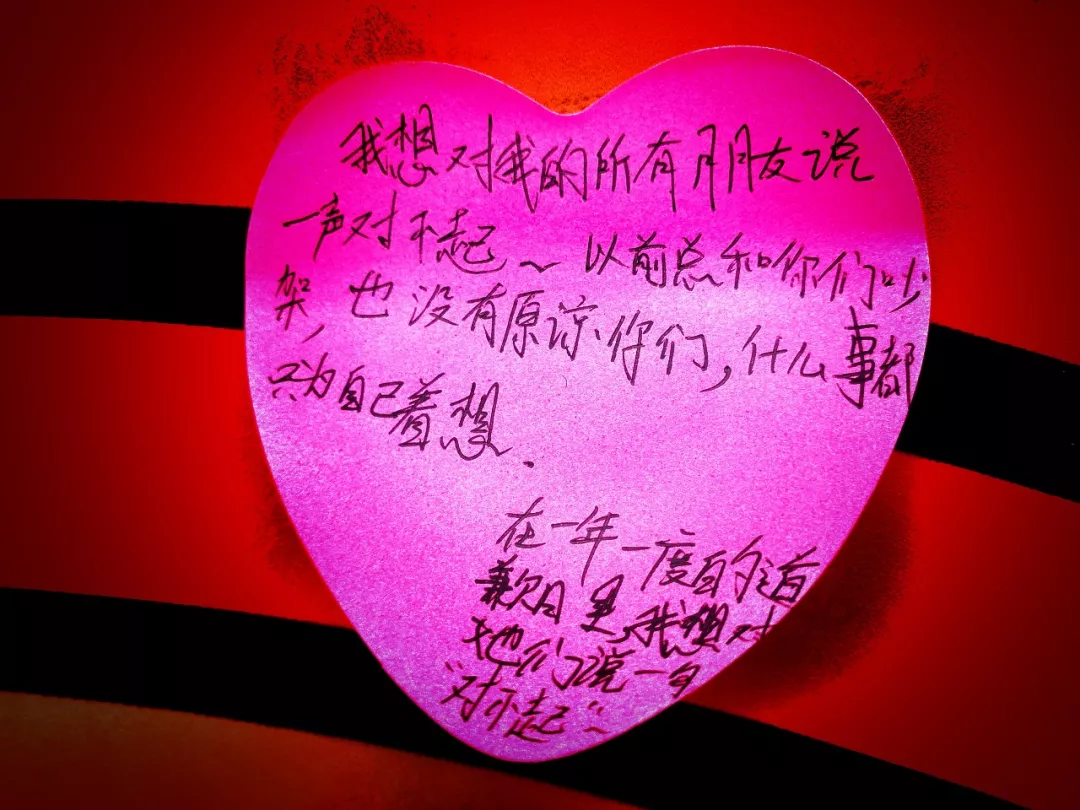 我想对我的所有朋友说
一声对不起~以前总和你们吵
架,也没有原谅你们,什么事都
只为自己着想.
在一年一度的道
歉日里,我想对
他们说一句
“对不起”~